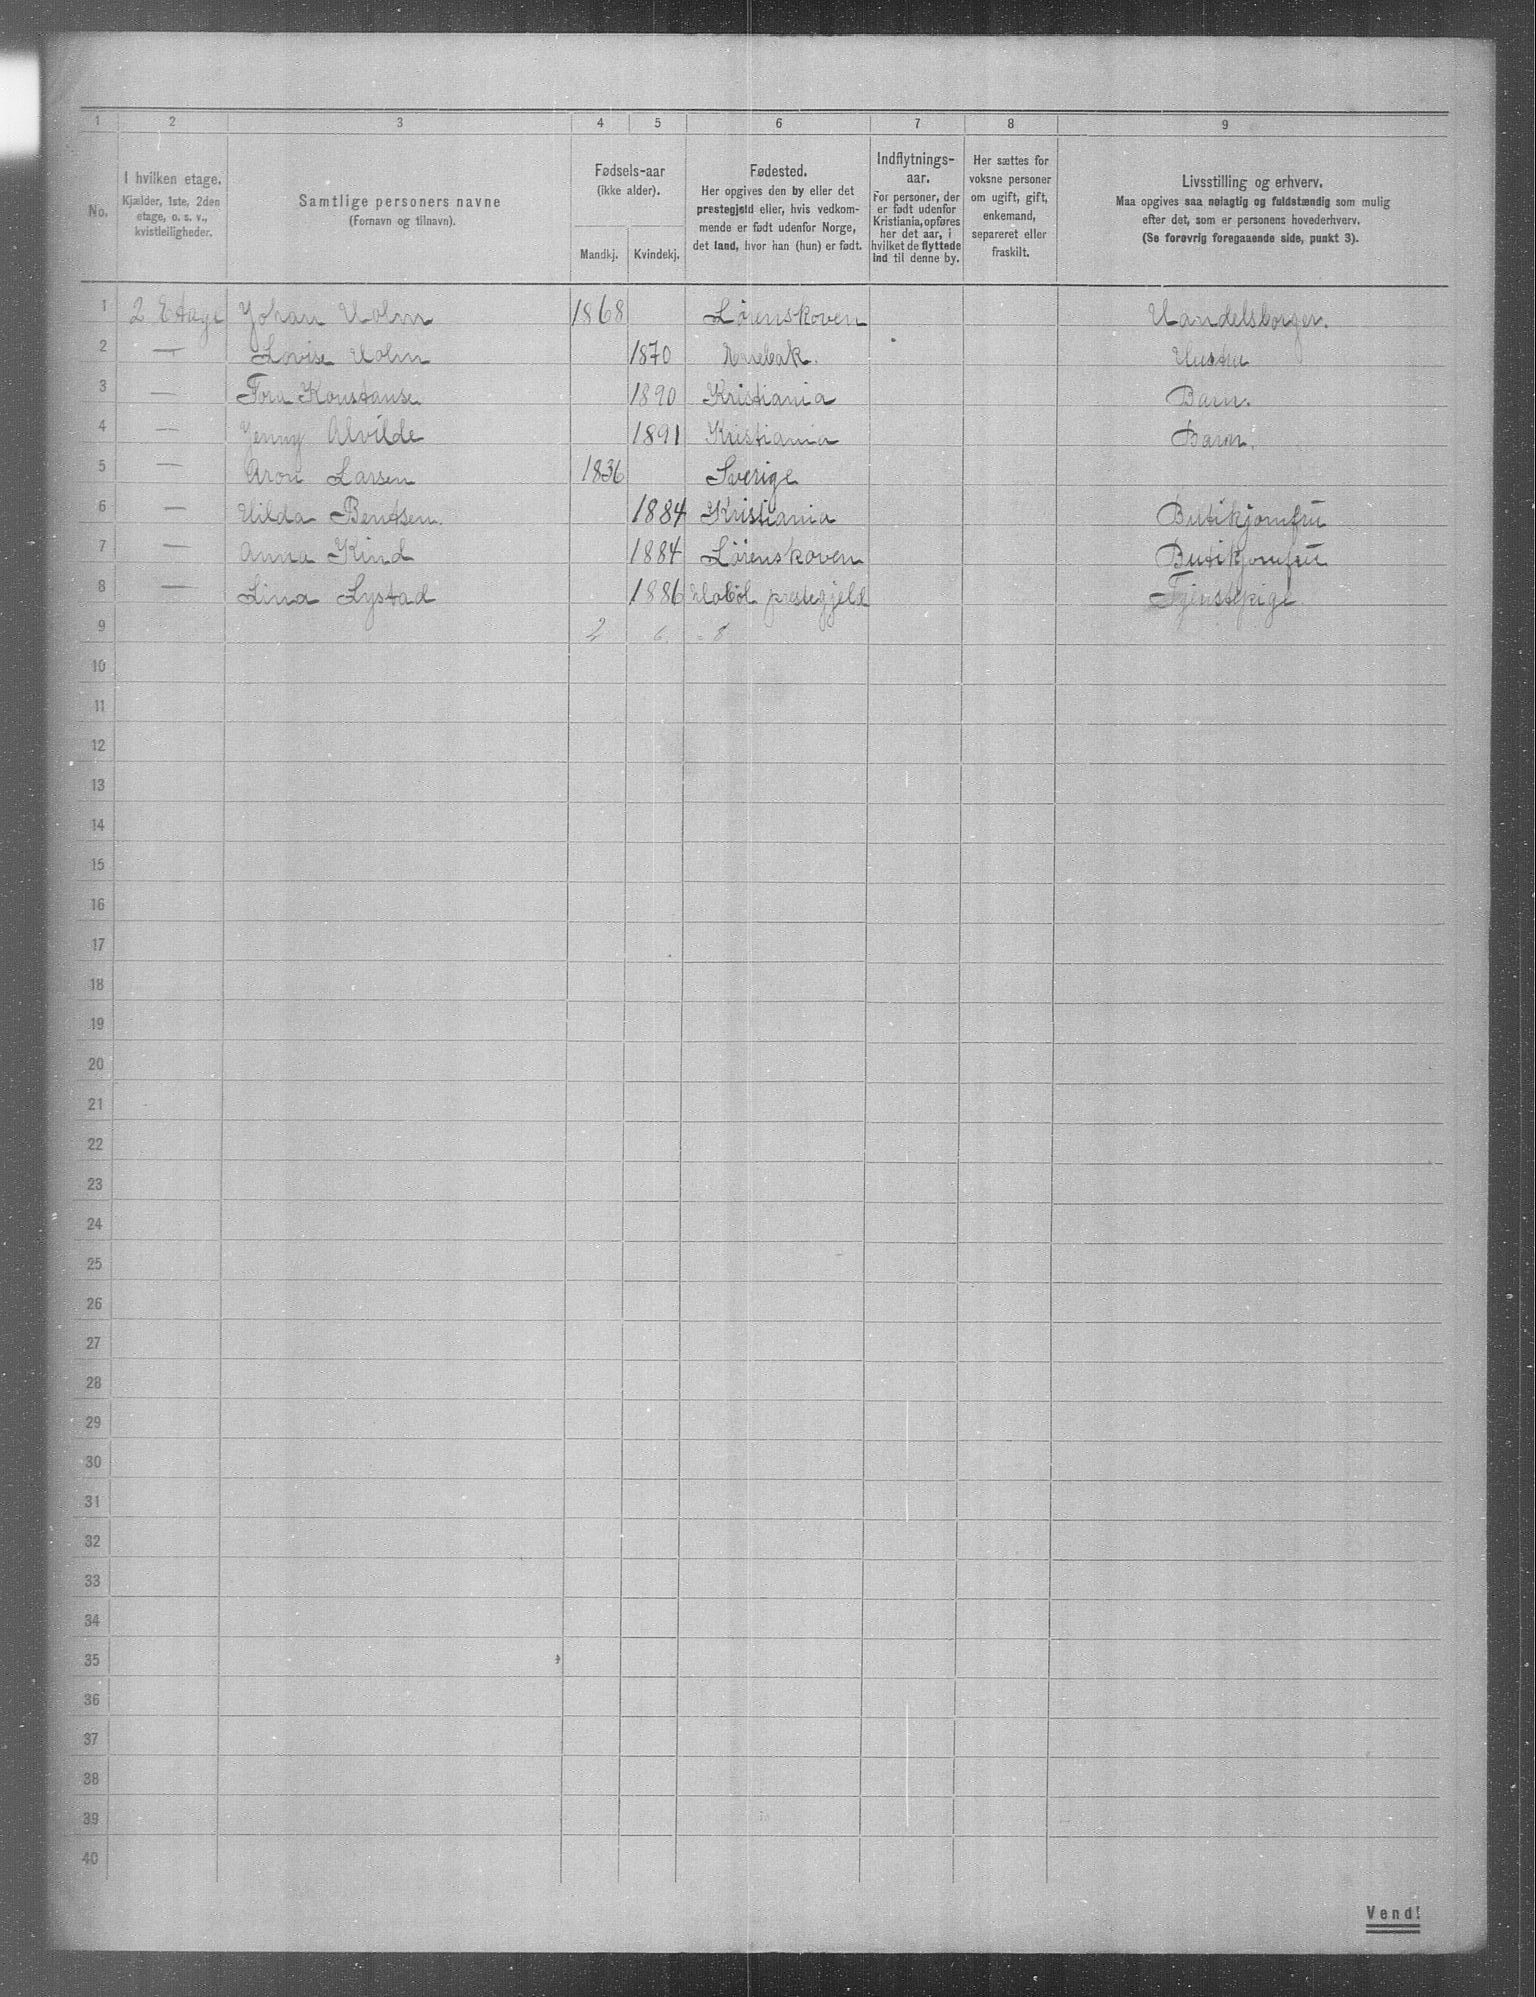 1 2 3 4 5 6 7 8 9
No.
I hvilken etage.
Kjælder, 1ste, 2den
etage, o. s. v.,
kvistleiligheder.
Samtlige personers navne
(Fornavn og tilnavn).
Fødsels-aar
(ikke alder).
Mandkj. Kvindekj.
Fødested.
Her opgives den by eller det
prestegjeld eller, hvis vedkom-
mende er født udenfor Norge,
det land, hvor han (hun) er født.
Indflytnings-
aar.
For personer, der
er født udenfor
Kristiania, opføres
her det aar, i
hvilket de flyttede
ind til denne by.
Her sættes for
voksne personer
om ugift, gift,
enkemand,
separeret eller
fraskilt.
Livsstilling og erhverv.
Maa opgives saa nøiagtig og fuldstændig som mulig
efter det, som er personens hovederhverv.
(Se forøvrig foregaaende side, punkt 3).
1 2 Etage Johan Holm 1868 Lörenskoven Handelsborger.
2 — Lovise Holm 1870 Hustru
3 — Tora Konstanse 1890 Kristiania Barn.
4 — Jenny Alvilde 1891 Kristiania Barn.
5 — Aron Larsen 1836 Sverige
6 — Hilda Bentsen. 1884 Kristiania Butikjomfru
7 — Anna Kind 1884 Lörenskoven Butikjomfru
8 — Lina Lystad 1886 Haaböl prestegjeld Tjenstepige
9 2 6 = 8
10
11
12
13
14
15
16
17
18
19
20
21
22
23
24
25
26
27
28
29
30
31
32
33
34
35
36
37
38
39
40
Vend!